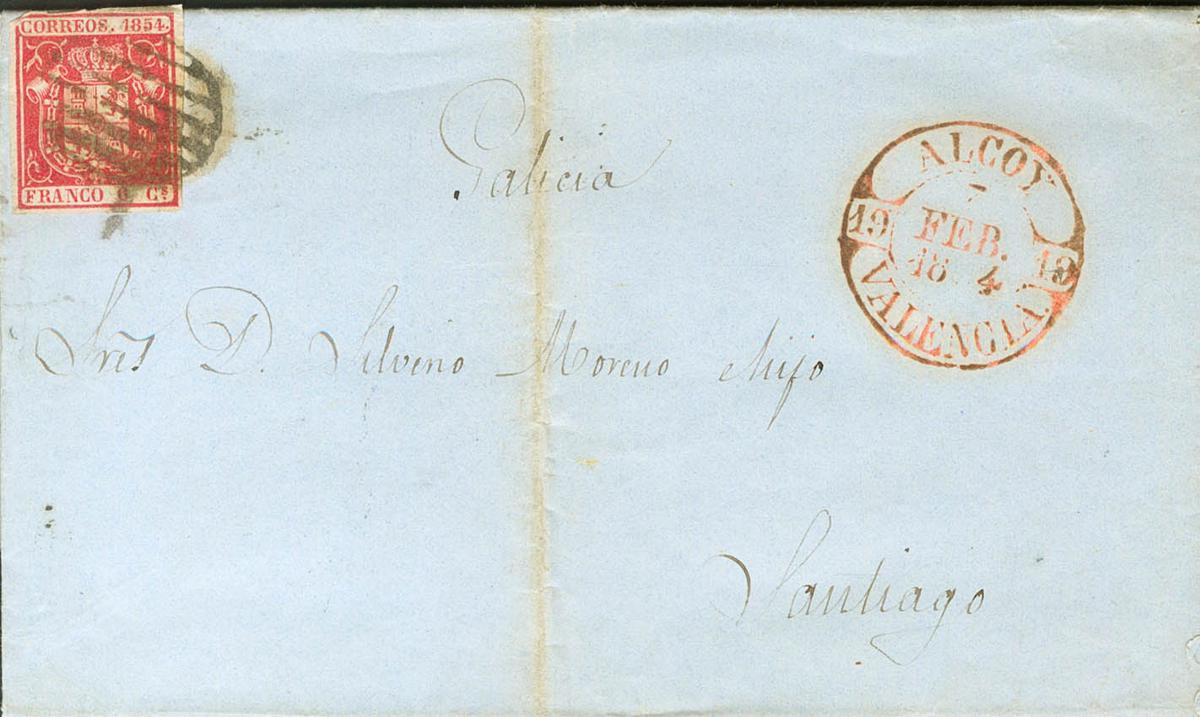 CORREOS. 1854.
FRANCO 6 Cs
Galicia
ALCOY
7
19 FEB. 19
18 4
VALENCIA.
Sres D. Silverio Moreno e hijo
Santiago